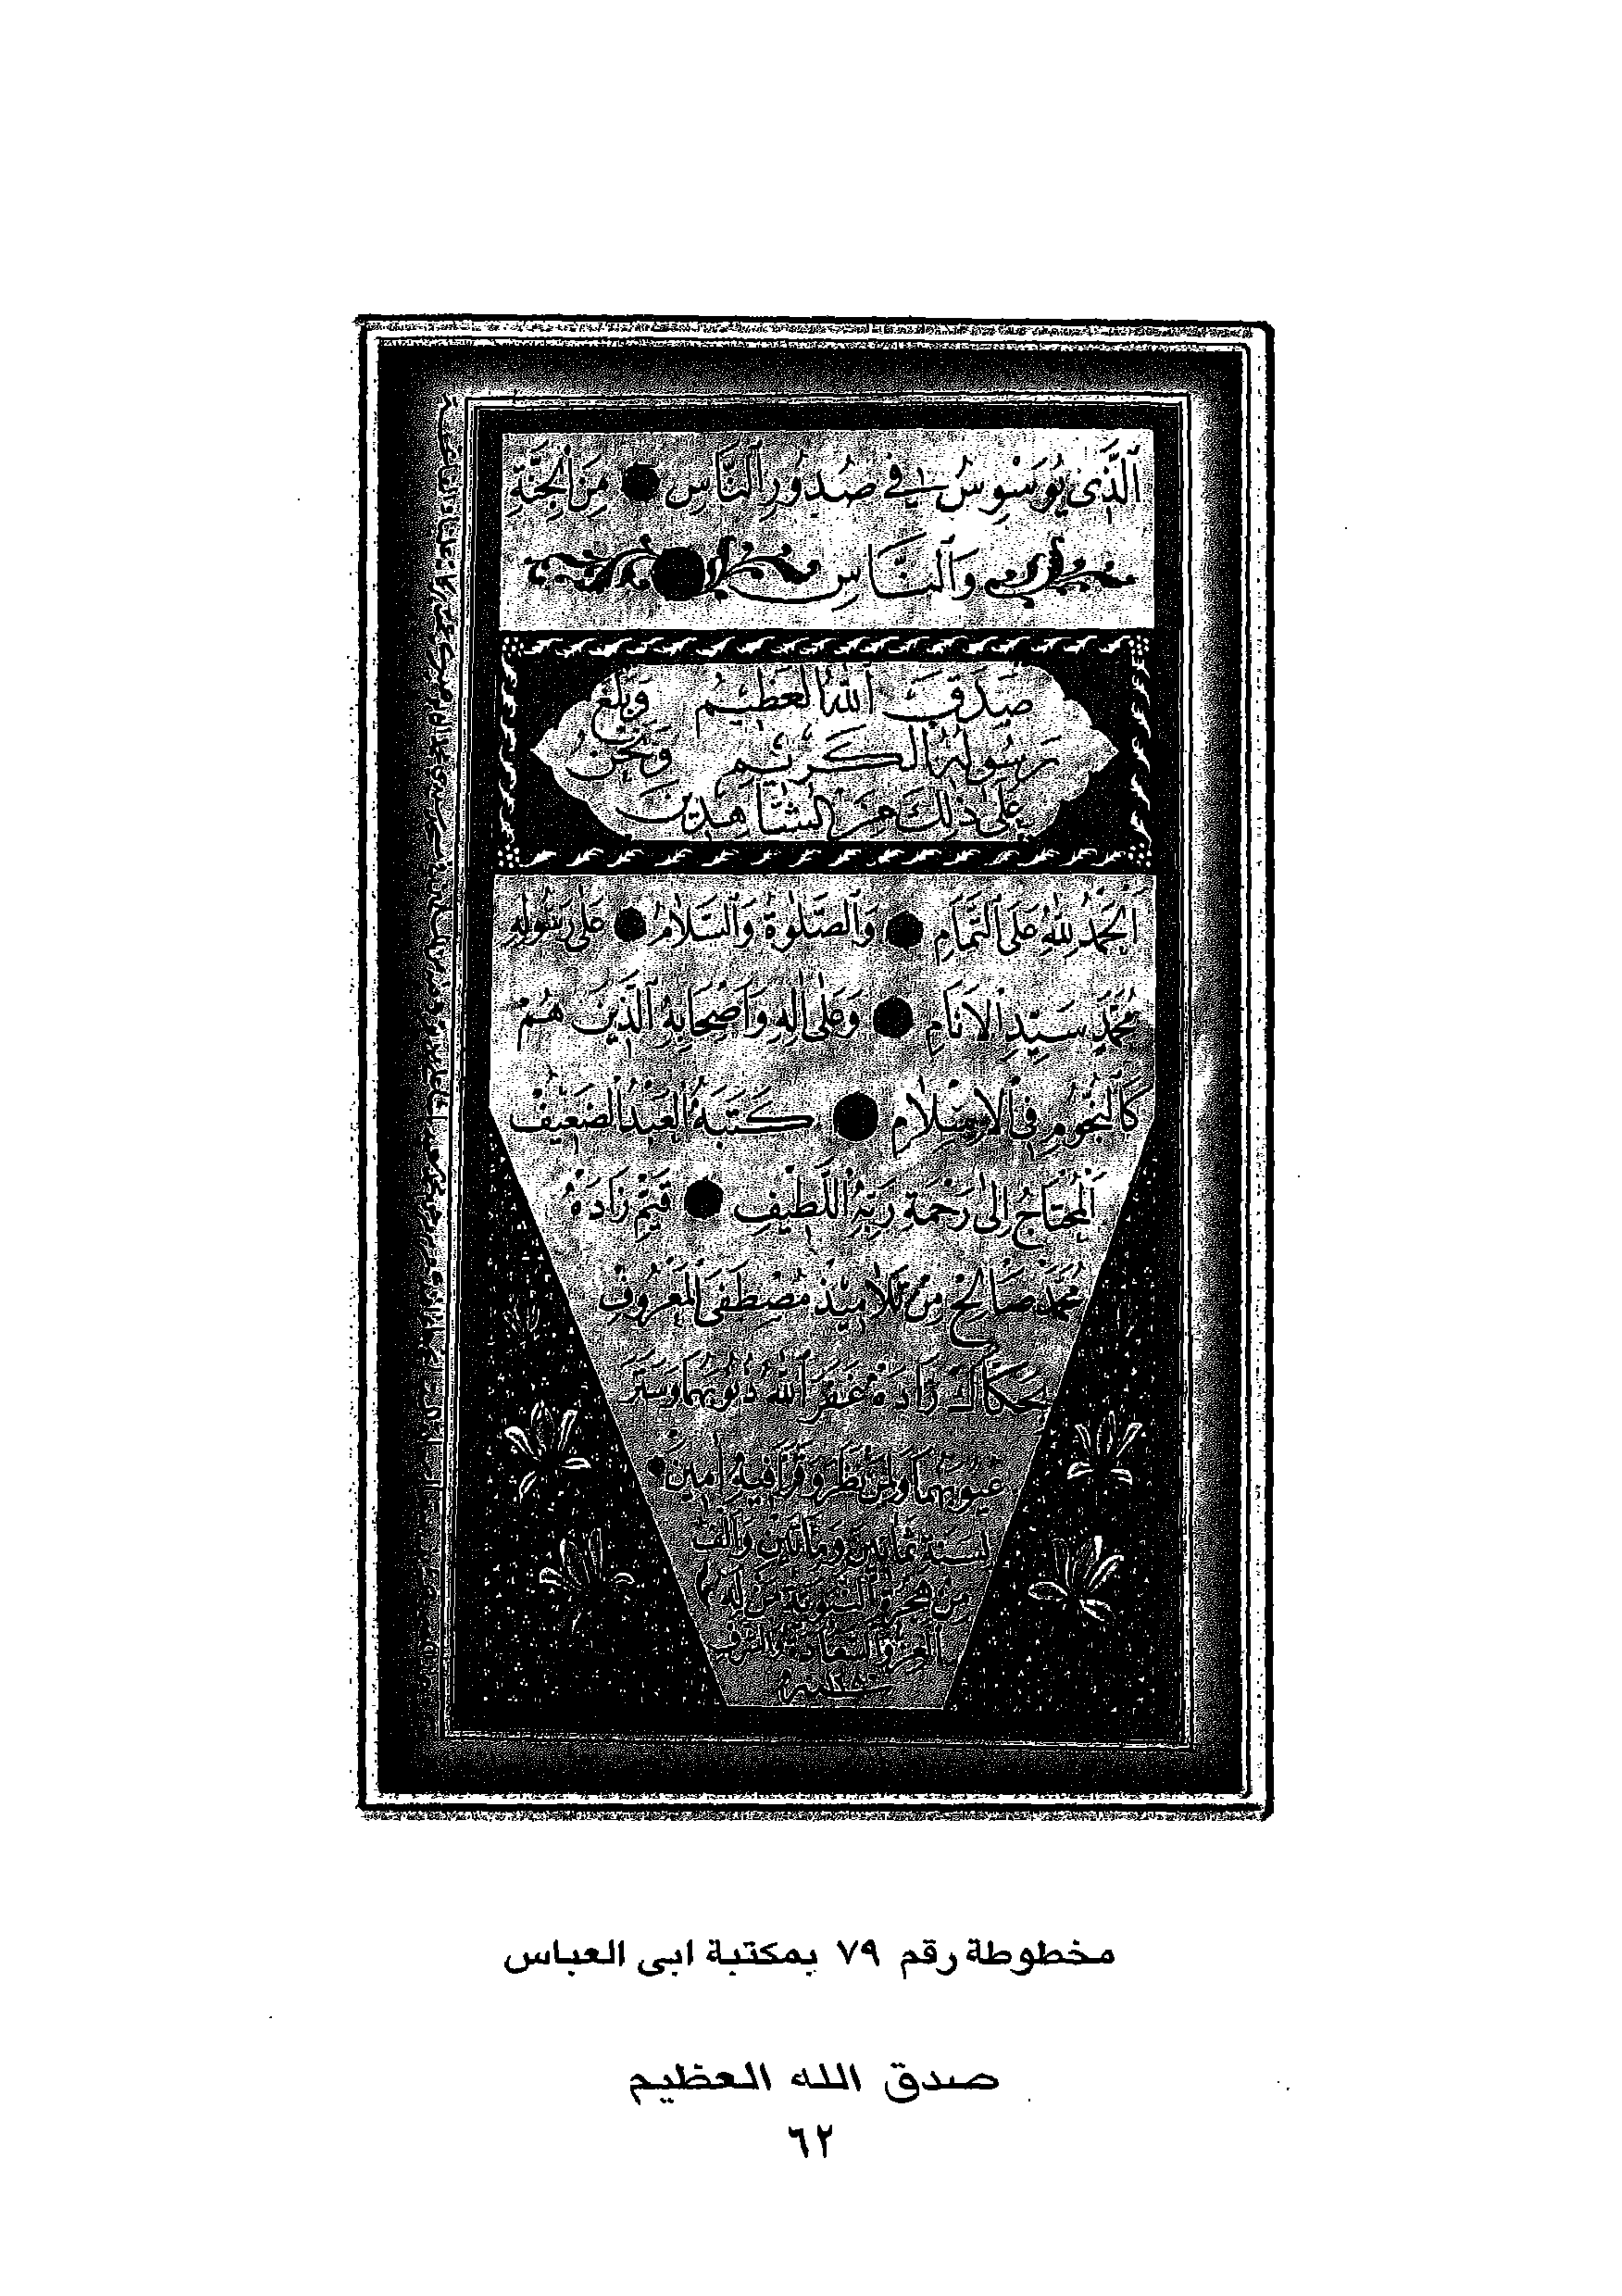 اَلَّذِى يُوَسْوِسُ فِى صُدُورِ النَّاسِ مِنَ الْجِنَّةِ
وَالنَّاسِ
صَدَقَ اللهُ الْعَظِيمُ وَبَلَّغَ
رَسُولُهُ الْكَرِيمُ وَنَحْنُ
عَلَى ذٰلِكَ مِنَ الشَّاهِدِينَ
اَلْحَمْدُ لِلّٰهِ عَلَى التَّمَامِ وَالصَّلٰوةُ وَالسَّلَامُ عَلَى رَسُولِهِ
مُحَمَّدٍ سَيِّدِ الْاَنَامِ وَعَلٰى اٰلِهِ وَاَصْحَابِهِ الَّذِينَ هُمْ
كَالنُّجُومِ فِى الْاِسْلَامِ كَتَبَهُ الْعَبْدُ الضَّعِيفُ
اَلْمُحْتَاجُ اِلٰى رَحْمَةِ رَبِّهِ اللَّطِيفِ قَيِّمْ زَادَهْ
مُحَمَّدْ صَالِحْ مِنْ تَلَامِيذِ مُصْطَفَى الْمَعْرُوفِ
بِحَكَّاكْ زَادَهْ غَفَرَ اللهُ ذُنُوبَهُمَا وَسَتَرَ
عُيُوبَهُمَا وَلِمَنْ نَظَرَ وَقَرَاَ فِيهِ اٰمِينَ
لِسَنَةِ ثَمَانِينَ وَمِائَتَيْنِ وَاَلْفٍ
مِنْ هِجْرَةِ النَّبَوِيَّةِ مَنْ لَهُ
الْعِزُّ وَالسَّعَادَةُ وَالشَّرَفُ
مخطوطة رقم ٧٩ بمكتبة ابى العباس
صدق الله العظيم
٦٢